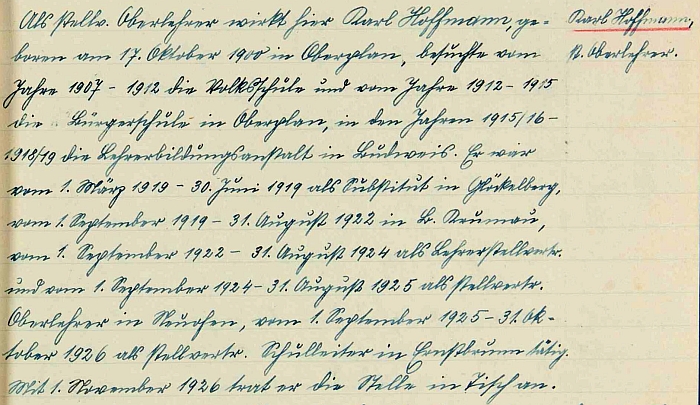 Als stellv. Oberlehrer wirkt hier Karl Hoffmann, ge-
boren am 17. Oktober 1900 in Oberplan, besuchte vom
Jahre 1907 - 1912 die Volksschule und vom Jahre 1912 - 1915
die Bürgerschule in Oberplan, in den Jahren 1915/16 -
1918/19 die Lehrerbildungsanstalt in Budweis. Er war
vom 1. März 1919 - 30. Juni 1919 als Substitut in Glöckelberg,
vom 1. September 1919 - 31. August 1922 in B. Krumau,
vom 1. September 1922 - 31. August 1924 als Lehrerstellvertr.
und vom 1. September 1924 - 31. August 1925 als stellvertr.
Oberlehrer in Neuofen, vom 1. September 1925 - 31. Ok-
tober 1926 als stellvertr. Schulleiter in Ernstbrunn tätig.
Mit 1. November 1926 trat er die Stelle in Tisch an.
Karl Hoffmann,
st. Oberlehrer.